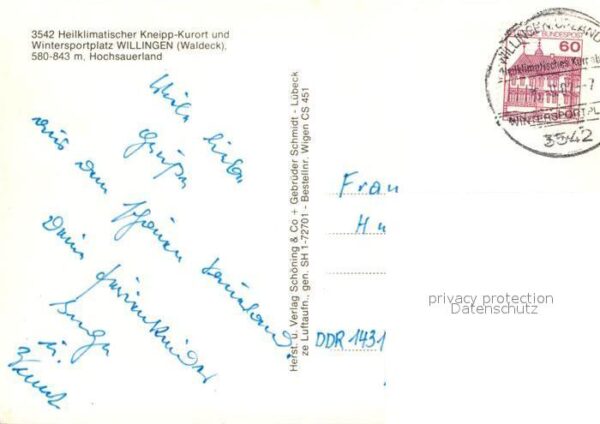 3542 Heilklimatischer Kneipp-Kurort und
Wintersportplatz WILLINGEN (Waldeck),
580-843 m, Hochsauerland
Viele liebe
Grüße
aus dem schönen Sauerland.
Deine Ferienkinder
Inge
u.
Herst. u. Verlag Schöning & Co + Gebrüder Schmidt - Lübeck
ze Luftaufn., gen. SH 1-72701 - Bestellnr. Wigen CS 451
WILLINGEN, UPLAND
DEUTSCHE BUNDESPOST
60
Heilklimatisches Kneipp
WINTERSPORTPL
3542
Frau
Hu
DDR 1431
privacy protection
Datenschutz